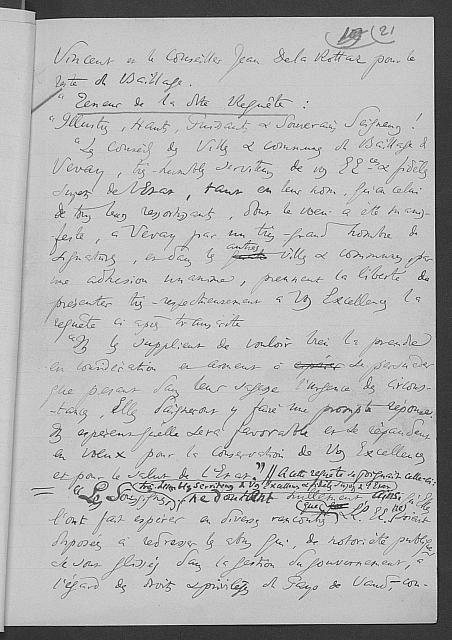 21
Vincent et le Conseiller Jean Dela Rottaz pour le
reste du Baillage.
" Teneur de la dite Requête :
" Illustres, Hauts, Puissants & Souverains Seigneurs !
" Les Conseils des Villes & communes du Baillage de
Vevey, très-humbles serviteurs de vos EE ces & fidèles
sujets de l'Etat, tant en leur nom, qu'en celui
de tous leurs ressortissants, dont le vœu a été mani-
festé, à Vevey par un très-grand nombre de
signatures, et dans les autres villes & communes, par
une adhésion unanime, prennent la liberté de
présenter très-respectueusement à Vos Excellences la
requête ci après transcrite
" Ils les supplient de vouloir bien la prendre
en considération et aiment à espérer se persuader
que pesant dans leur sagesse l'urgence des circons-
tances, Elles daigneront y faire une prompte réponse
Ils espèrent qu'elle sera favorable et se répandent
en vœux pour la conservation de Vos Excellences
et pour le salut de l'Etat " // A cette requête se joignait celle-ci:
" Les Soussignés (très humbles serviteurs de Vos Excellences & fidèles sujets de l'Etat) ne doutent nullement ainsi qu'Elles
l'ont fait espérer en diverses rencontres (que) L.L. EE. (ne) soient
disposées à redresser les abus qui, de notoriété publique
se sont glissés dans la gestion du gouvernement, à
l'égard des droits & privilèges du Pays de Vaud, con-